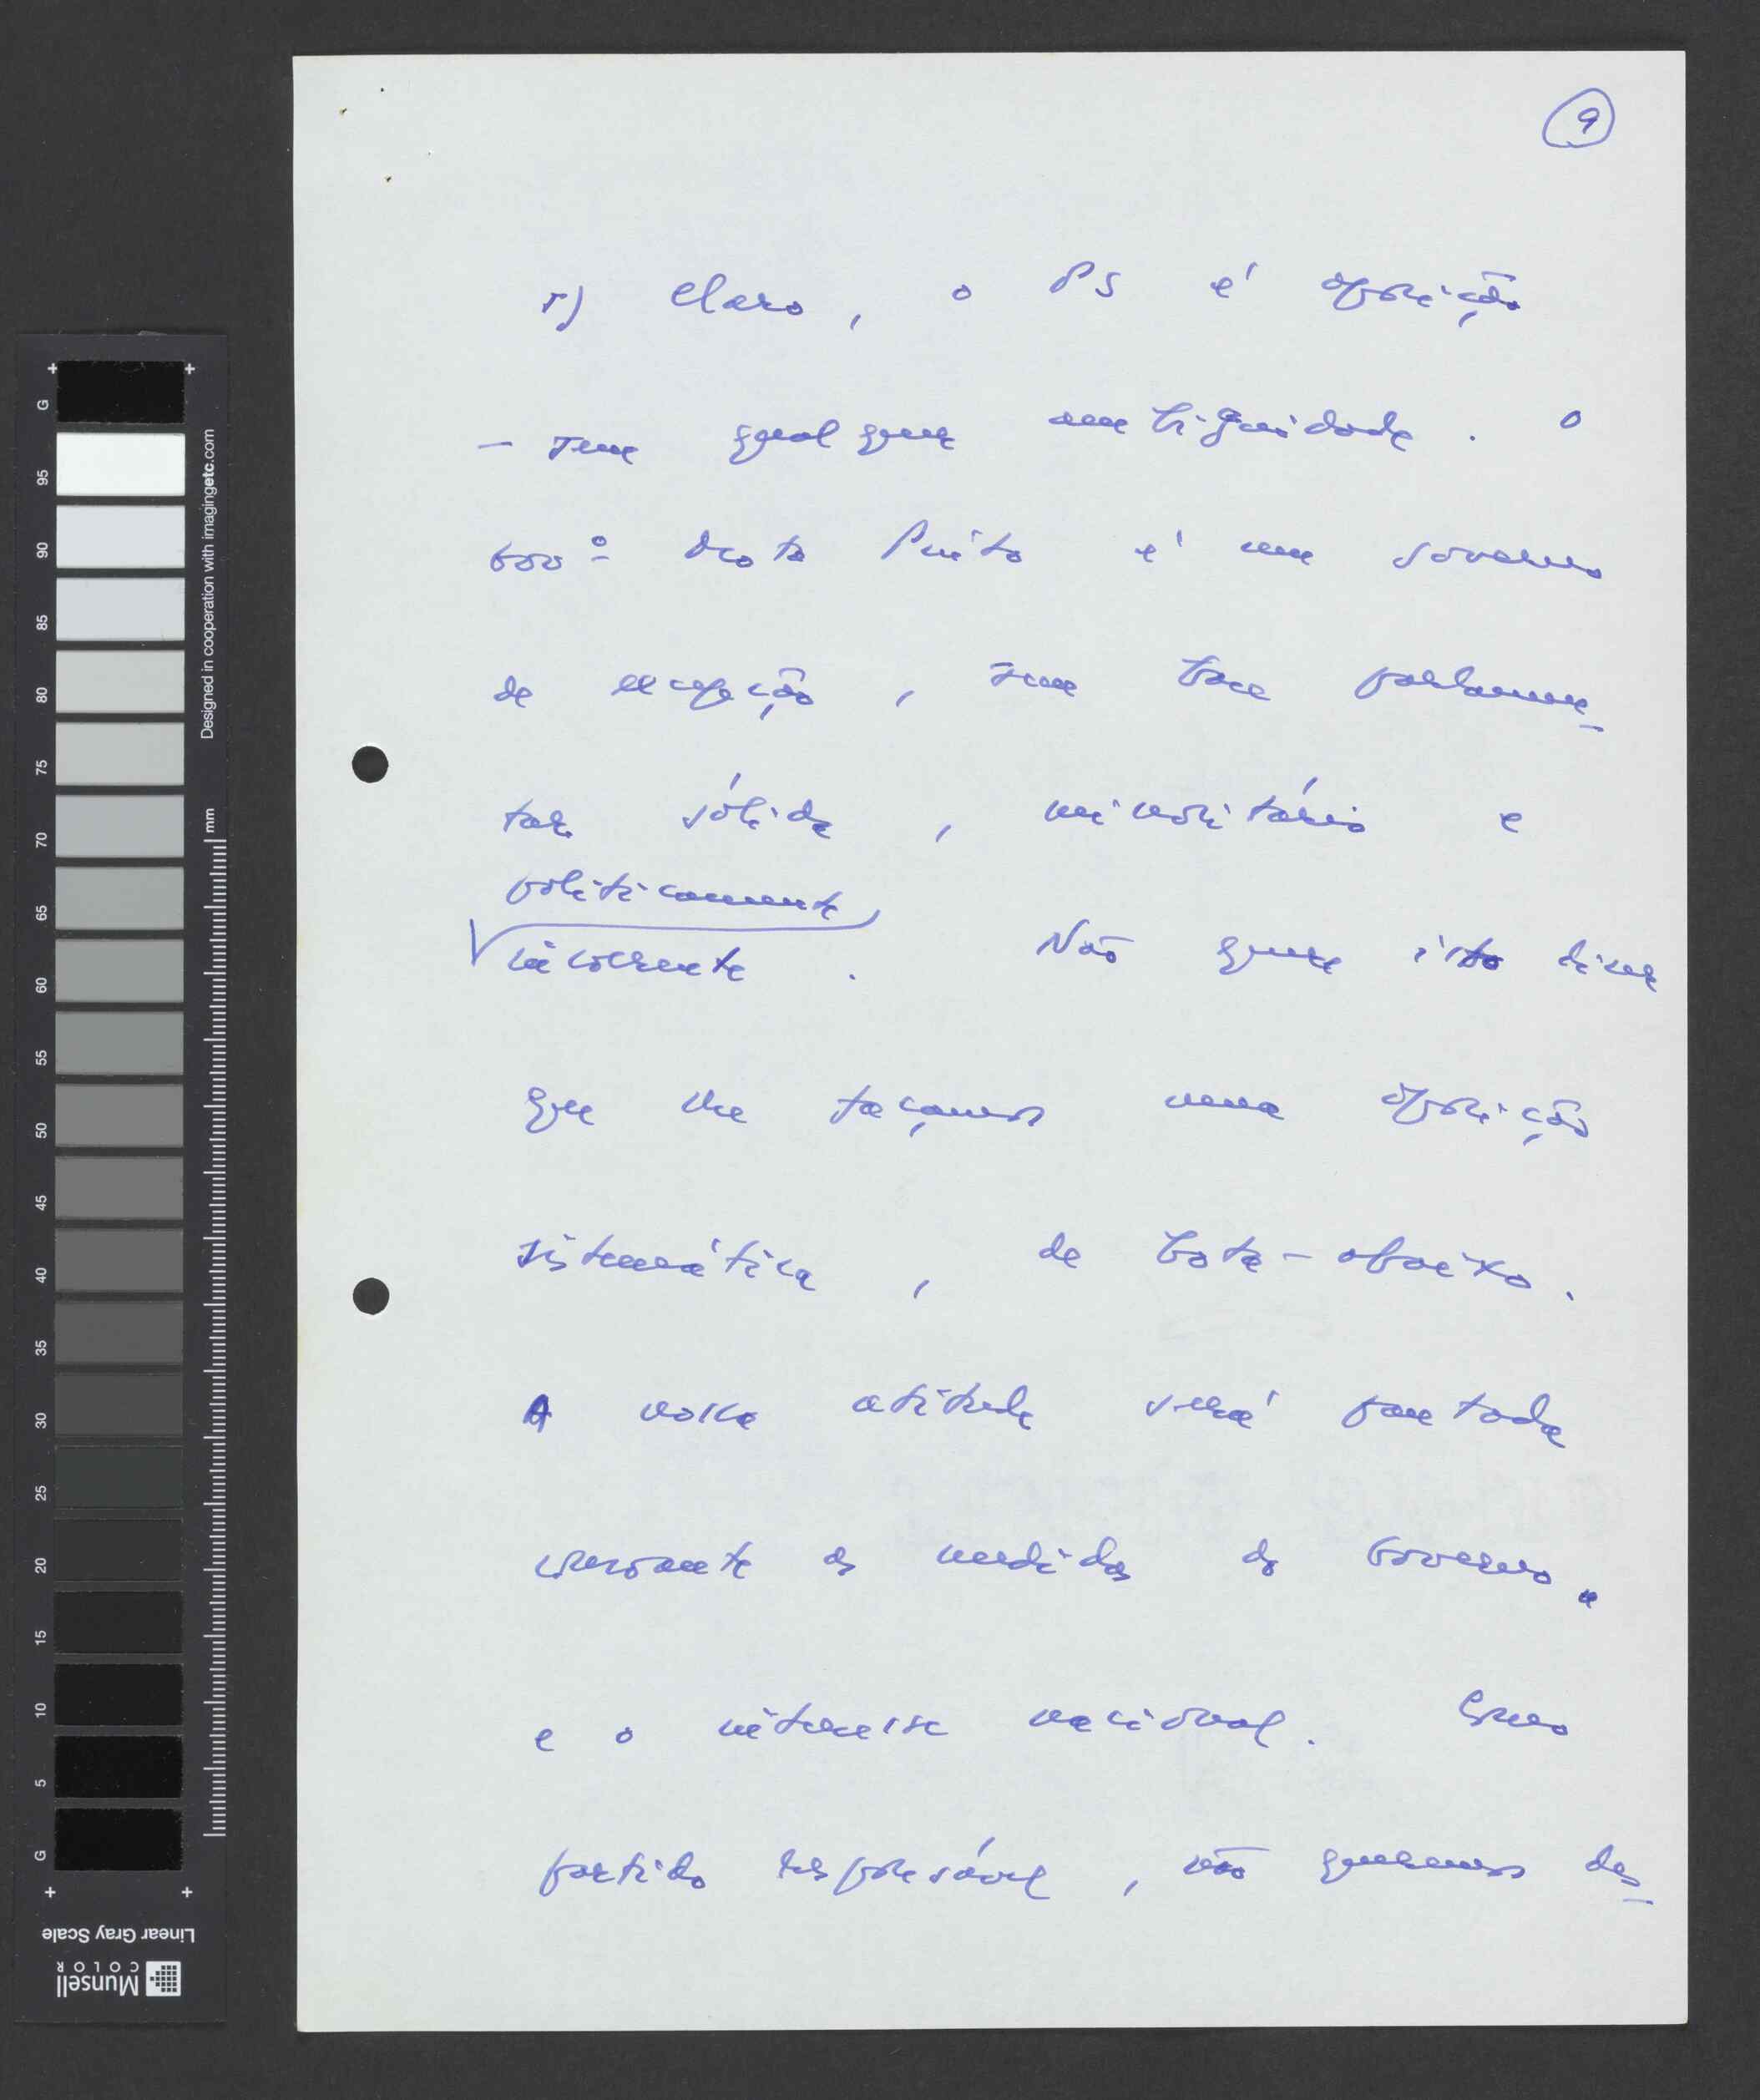 9
5) Claro, o PS é oposição
- sem qualquer ambiguidade. O
Govº Mota Pinto é um Governo
de excepção, sem base parlamen-
tar sólida, minoritário e
politicamente
incoerente. Não quer isto dizer
que lhe façamos uma oposição
sistemática, de bota-abaixo.
A nossa atitude será pautada
consoante as medidas do Governo
e o interesse nacional. Como
partido responsável, não queremos des-
G
95
90
85
80
75
70
65
60
55
50
45
40
35
30
25
20
15
10
5
G
mm
Designed in cooperation with imagingetc.com
Linear Gray Scale
Munsell
COLOR